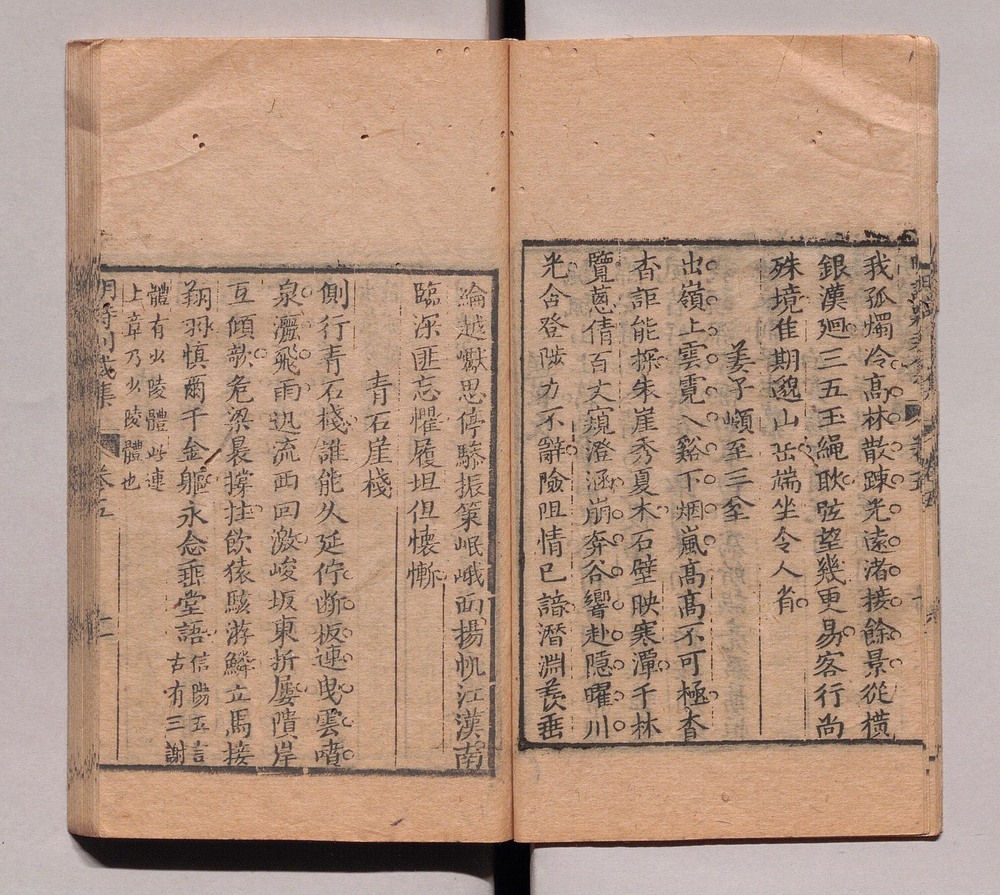 我孤燭冷高林散踈光遠渚接餘景從橫
銀漢廻三五玉繩耿眩望幾更易客行尚
殊境隹期邈山岳端坐令人省
姜子嶺至三全
出嶺上雲霓入谿下烟嵐高高不可極杳
杳詎能探朱崖秀夏木石壁映寒潭千林
覽蔥倩百丈窺澄涵崩奔谷響赴隱曜川
光含登陟力不辭險阻情已諳潛淵羨垂
綸越巘思停驂振策岷峨面揚帆江漢南
臨深匪忘懼履坦但懷慚
青石崖棧
側行青石棧誰能久延佇斷板連曳雲噴
泉灑飛雨迅流西回激峻坂東折屢隤岸
互傾欹危梁晨撐拄飲猿駭游鱗立馬接
翔羽慎爾千金軀永念垂堂語信陽五言
古有三謝
體有少陵體此連
上章乃少陵體也
明詩別裁集 卷五 十一